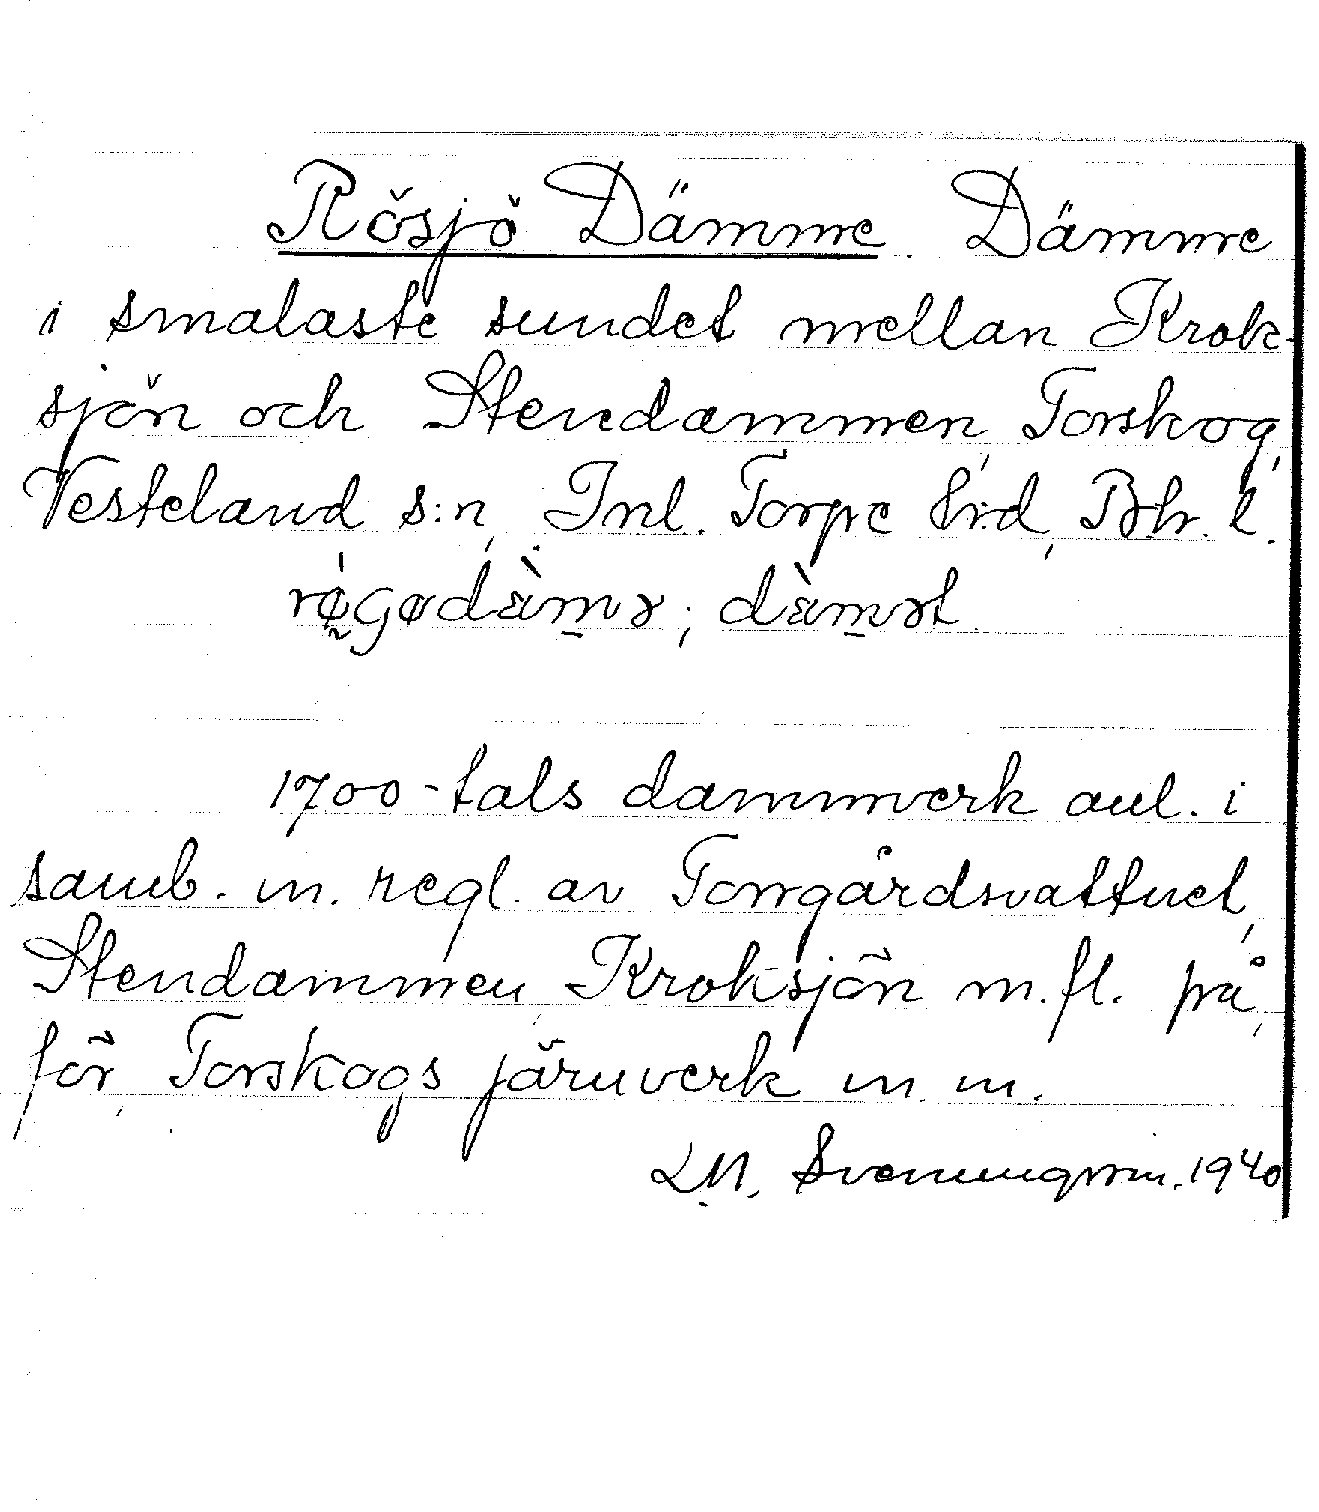 Rösjö Dämme. Dämme
i smalaste sundet mellan Krok-
sjön och Stendammen, Torskog,
Vesteland s:n, Inl. Torpe hrd, Bhr. l.
1700-tals dammverk anl. i
samb. m. regl. av Torrgårdsvattnet,
Stendammen, Kroksjön m.fl. på,
för, Torskogs järnverk m. m.
L.M. Svenungsson. 1940